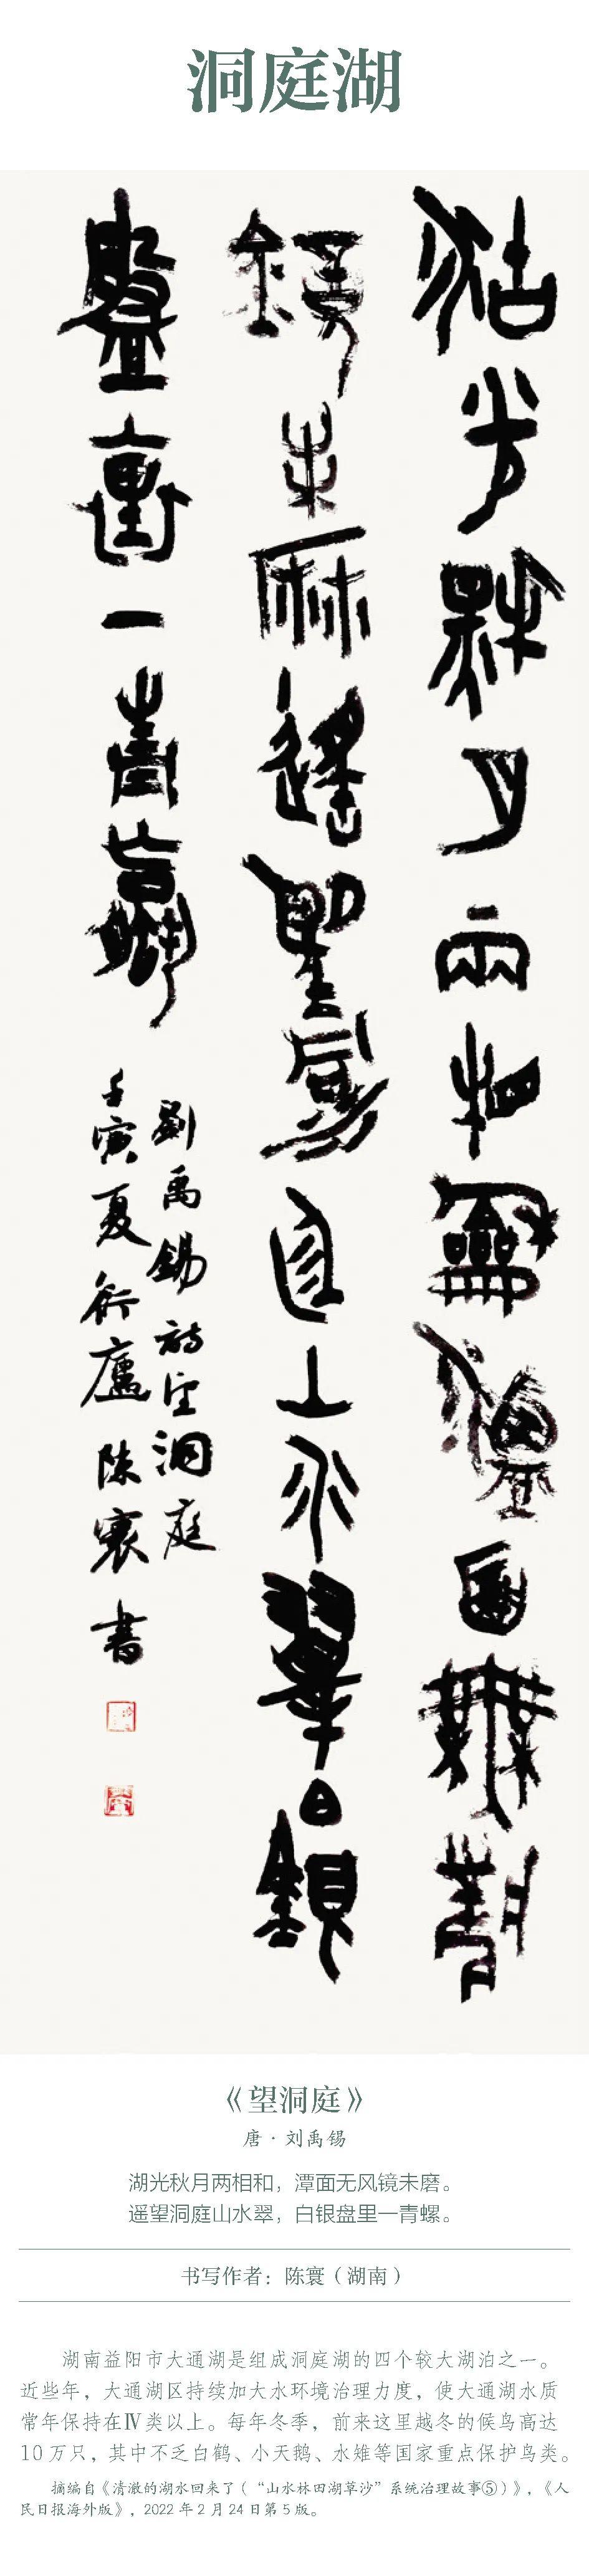 洞庭湖
湖光秋月兩相和潭面無風
鏡未磨遙望洞庭山水翠白銀
盤裏一青螺
劉禹錫詩望洞庭
壬寅夏衍廬陳寰書
《望洞庭》
唐·刘禹锡
湖光秋月两相和，潭面无风镜未磨。
遥望洞庭山水翠，白银盘里一青螺。
书写作者：陈寰（湖南）
湖南益阳市大通湖是组成洞庭湖的四个较大湖泊之一。
近些年，大通湖区持续加大水环境治理力度，使大通湖水质
常年保持在Ⅳ类以上。每年冬季，前来这里越冬的候鸟高达
10万只，其中不乏白鹤、小天鹅、水雉等国家重点保护鸟类。
摘编自《清澈的湖水回来了（“山水林田湖草沙”系统治理故事⑤）》，《人
民日报海外版》，2022年2月24日第5版。